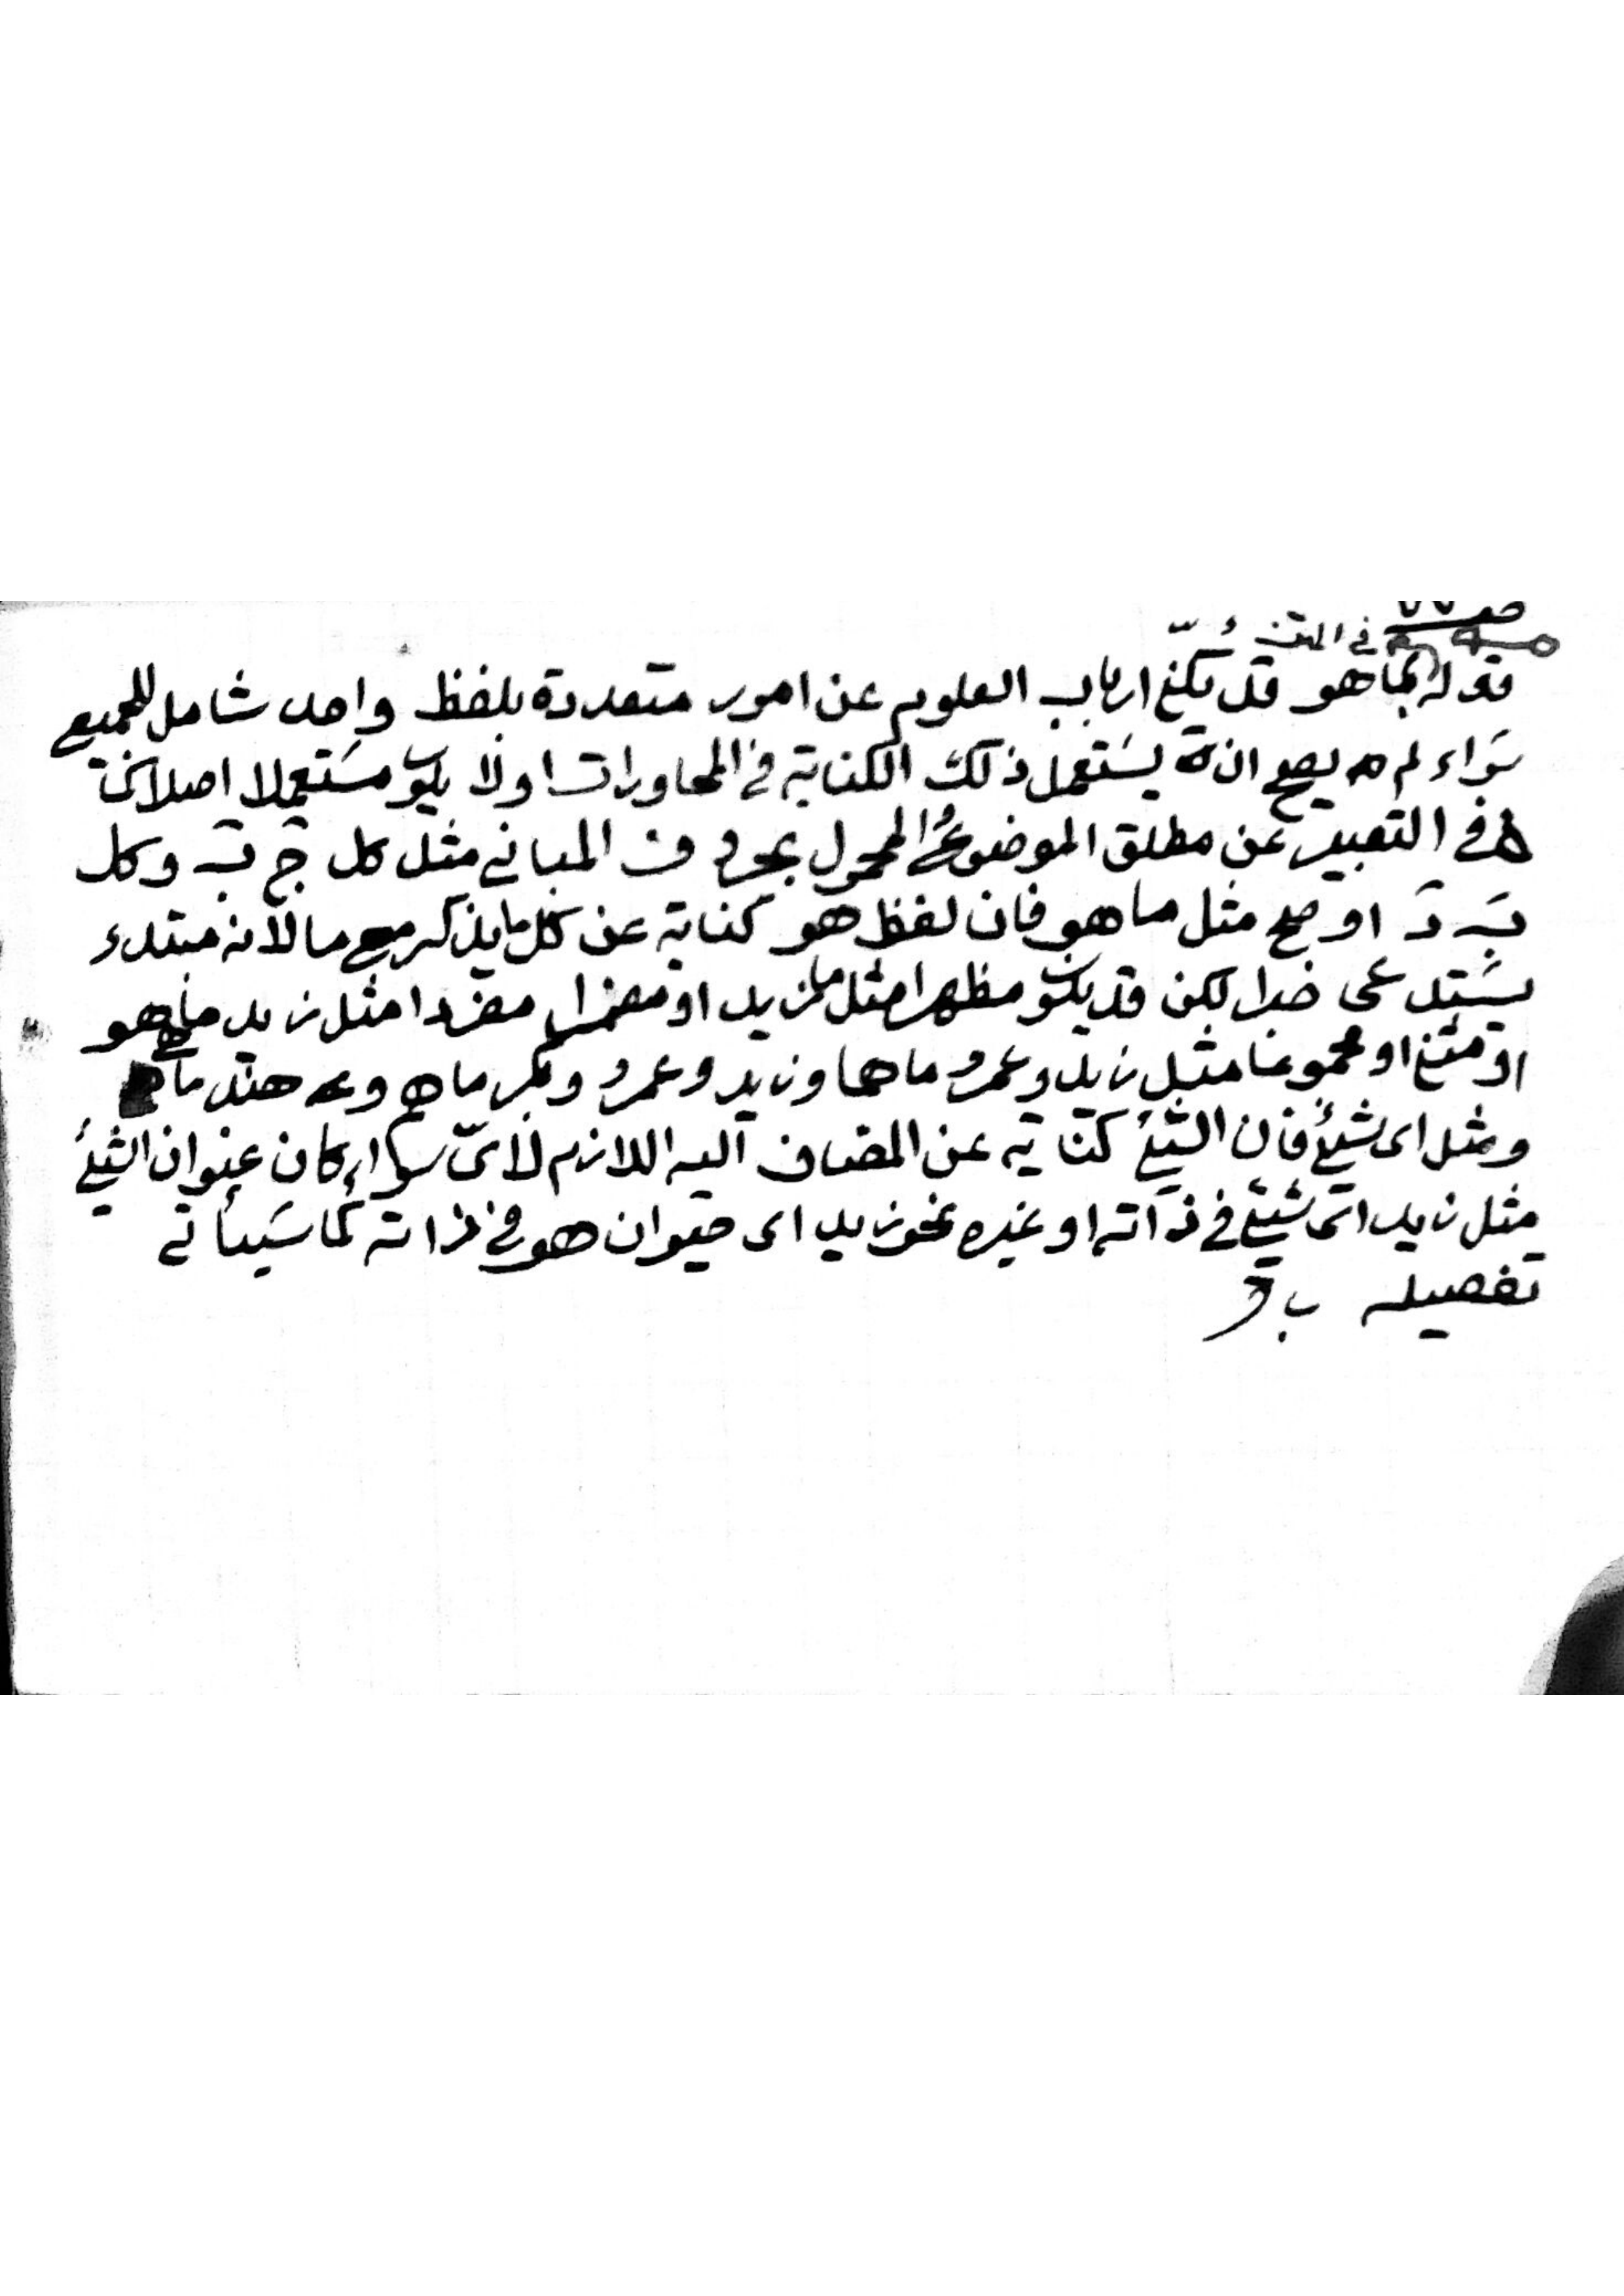 في المتن
قوله بما هو قد يكنى ارباب العلوم عن امور متعددة بلفظ واحد شامل للجميع
سواء لم يصح ان يستعمل ذلك الكناية في المحاورات او لا يكون مستعملا اصلا كما
في التعبير عن مطلق الموضوع المحمول بحروف المباني مثل كل ج ب وكل
ب د او صح مثل ما هو فان لفظ هو كناية عن كل ما يذكر مع ما لانه مبتدء
يستدعى خبرا لكن قد يكون مظهرا مثل ما زيد او مضمرا مفردا مثل زيد ما هو
او مثنى او مجموعا مثل زيد وعمرو ما هما وزيد وعمرو وبكر ما هم وهند ما
ومثل اى شيئ فان الشيئ كناية عن المضاف اليه اللازم لاىّ سواء كان عنوان الشيئ
مثل زيد اى شيئ في ذاته او غيره نحو زيد اى حيوان هو في ذاته كما سيأتي
تفصيله